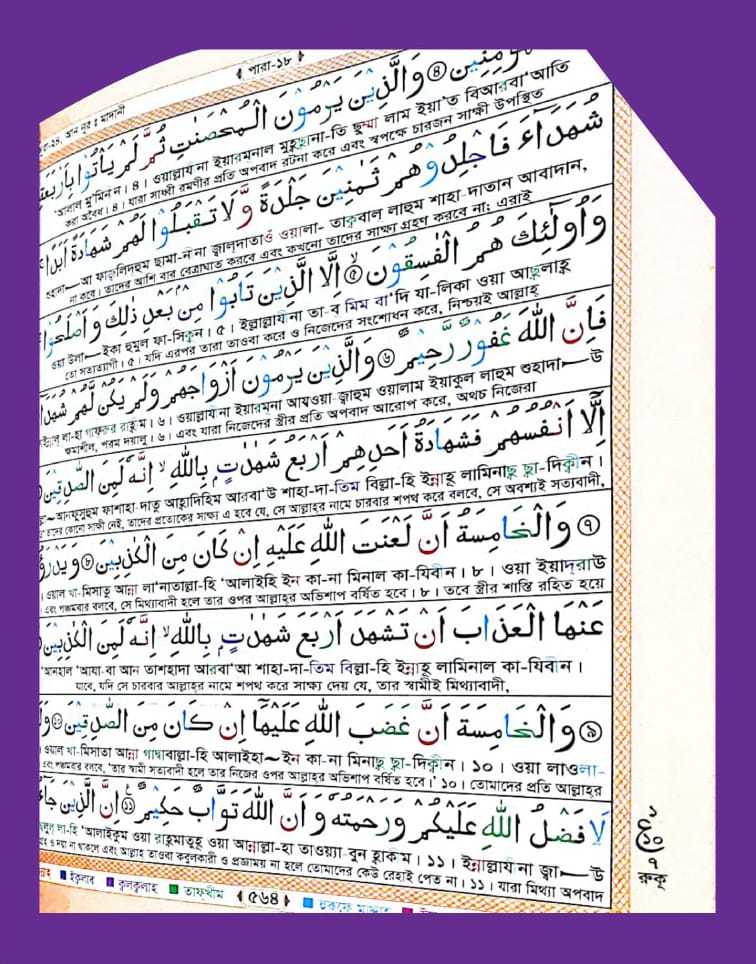 পারা-১৮
ؤْمِنِيْنَ ④ وَالَّذِيْنَ يَرْمُوْنَ الْمُحْصَنٰتِ ثُمَّ لَمْ يَأْتُوْا بِاَرْبَعَةِ
মু'মিনীন। ৪। ওয়াল্লাযীনা ইয়ারমূনাল মুহ্ছানা-তি ছুম্মা লাম ইয়া'তূ বিআরবা'আতি
৪। যারা সাধ্বী রমণীর প্রতি অপবাদ রটনা করে এবং স্বপক্ষে চারজন সাক্ষী উপস্থিত
شُهَدَآءَ فَاجْلِدُوْهُمْ ثَمٰنِيْنَ جَلْدَةً وَّلَا تَقْبَلُوْا لَهُمْ شَهَادَةً اَبَدًا
জ্বাল্দাতাওঁ ওয়ালা- তাক্ববালূ লাহুম শাহা-দাতান আবাদান,
না করে। তাদের আশি বার বেত্রাঘাত করবে এবং কখনো তাদের সাক্ষ্য গ্রহণ করবে না; এরাই
وَاُولٰٓئِكَ هُمُ الْفٰسِقُوْنَ ⑤ اِلَّا الَّذِيْنَ تَابُوْا مِنْۢ بَعْدِ ذٰلِكَ وَاَصْلَحُوْا
ওয়া উলা—ইকা হুমুল ফা-সিকূন। ৫। ইল্লাল্লাযীনা তা-বূ মিম বা'দি যা-লিকা ওয়া আছ্লাহূ
তো সত্যত্যাগী। ৫। যদি এরপর তারা তাওবা করে ও নিজেদের সংশোধন করে, নিশ্চয়ই আল্লাহ
فَاِنَّ اللّٰهَ غَفُوْرٌ رَّحِيْمٌ ⑥ وَالَّذِيْنَ يَرْمُوْنَ اَزْوَاجَهُمْ وَلَمْ يَكُنْ لَّهُمْ شُهَدَآءُ
৬। ওয়াল্লাযীনা ইয়ারমূনা আযওয়া-জ্বাহুম ওয়ালাম ইয়াকুল লাহুম শুহাদা—উ
ক্ষমাশীল, পরম দয়ালু। ৬। এবং যারা নিজেদের স্ত্রীর প্রতি অপবাদ আরোপ করে, অথচ নিজেরা
اِلَّآ اَنْفُسُهُمْ فَشَهَادَةُ اَحَدِهِمْ اَرْبَعُ شَهٰدٰتٍۢ بِاللّٰهِ ۙ اِنَّهٗ لَمِنَ الصّٰدِقِيْنَ
আনফুসুহুম ফাশাহা-দাতু আহাদিহিম আরবা'উ শাহা-দা-তিম বিল্লা-হি ইন্নাহূ লামিনাছ ছা-দিক্বীন।
কোনো সাক্ষী নেই, তাদের প্রত্যেকের সাক্ষ্য এ হবে যে, সে আল্লাহর নামে চারবার শপথ করে বলবে, সে অবশ্যই সত্যবাদী,
⑦ وَالْخَامِسَةُ اَنَّ لَعْنَتَ اللّٰهِ عَلَيْهِ اِنْ كَانَ مِنَ الْكٰذِبِيْنَ ⑧ وَيَدْرَؤُا
ওয়াল খা-মিসাতু আন্না লা'নাতাল্লা-হি 'আলাইহি ইন কা-না মিনাল কা-যিবীন। ৮। ওয়া ইয়াদরাউ
এবং পঞ্চমবার বলবে, সে মিথ্যাবাদী হলে তার ওপর আল্লাহর অভিশাপ বর্ষিত হবে। ৮। তবে স্ত্রীর শাস্তি রহিত হয়ে
عَنْهَا الْعَذَابَ اَنْ تَشْهَدَ اَرْبَعَ شَهٰدٰتٍۢ بِاللّٰهِ ۙ اِنَّهٗ لَمِنَ الْكٰذِبِيْنَ
'আনহাল 'আযা-বা আন তাশহাদা আরবা'আ শাহা-দা-তিম বিল্লা-হি ইন্নাহূ লামিনাল কা-যিবীন।
যাবে, যদি সে চারবার আল্লাহর নামে শপথ করে সাক্ষ্য দেয় যে, তার স্বামীই মিথ্যাবাদী,
⑨ وَالْخَامِسَةَ اَنَّ غَضَبَ اللّٰهِ عَلَيْهَآ اِنْ كَانَ مِنَ الصّٰدِقِيْنَ ⑩ وَلَوْ
ওয়াল খা-মিসাতা আন্না গাদ্বাবাল্লা-হি আলাইহা~ইন কা-না মিনাছ ছা-দিক্বীন। ১০। ওয়া লাওলা-
এবং পঞ্চমবার বলবে, 'তার স্বামী সত্যবাদী হলে তার নিজের ওপর আল্লাহর অভিশাপ বর্ষিত হবে।' ১০। তোমাদের প্রতি আল্লাহর
لَا فَضْلُ اللّٰهِ عَلَيْكُمْ وَرَحْمَتُهٗ وَاَنَّ اللّٰهَ تَوَّابٌ حَكِيْمٌ ⑪ اِنَّ الَّذِيْنَ جَآءُ
লা-হি 'আলাইকুম ওয়া রাহ্মাতুহূ ওয়া আন্নাল্লা-হা তাওয়্যা-বুন হাকীম। ১১। ইন্নাল্লাযীনা জ্বা—উ
ও দয়া না থাকলে এবং আল্লাহ তাওবা কবুলকারী ও প্রজ্ঞাময় না হলে তোমাদের কেউ রেহাই পেত না। ১১। যারা মিথ্যা অপবাদ
ইক্বলাব ক্বলক্বলাহ তাফখীম ৫৬৪
১
ع
১০
৭
রুকূ